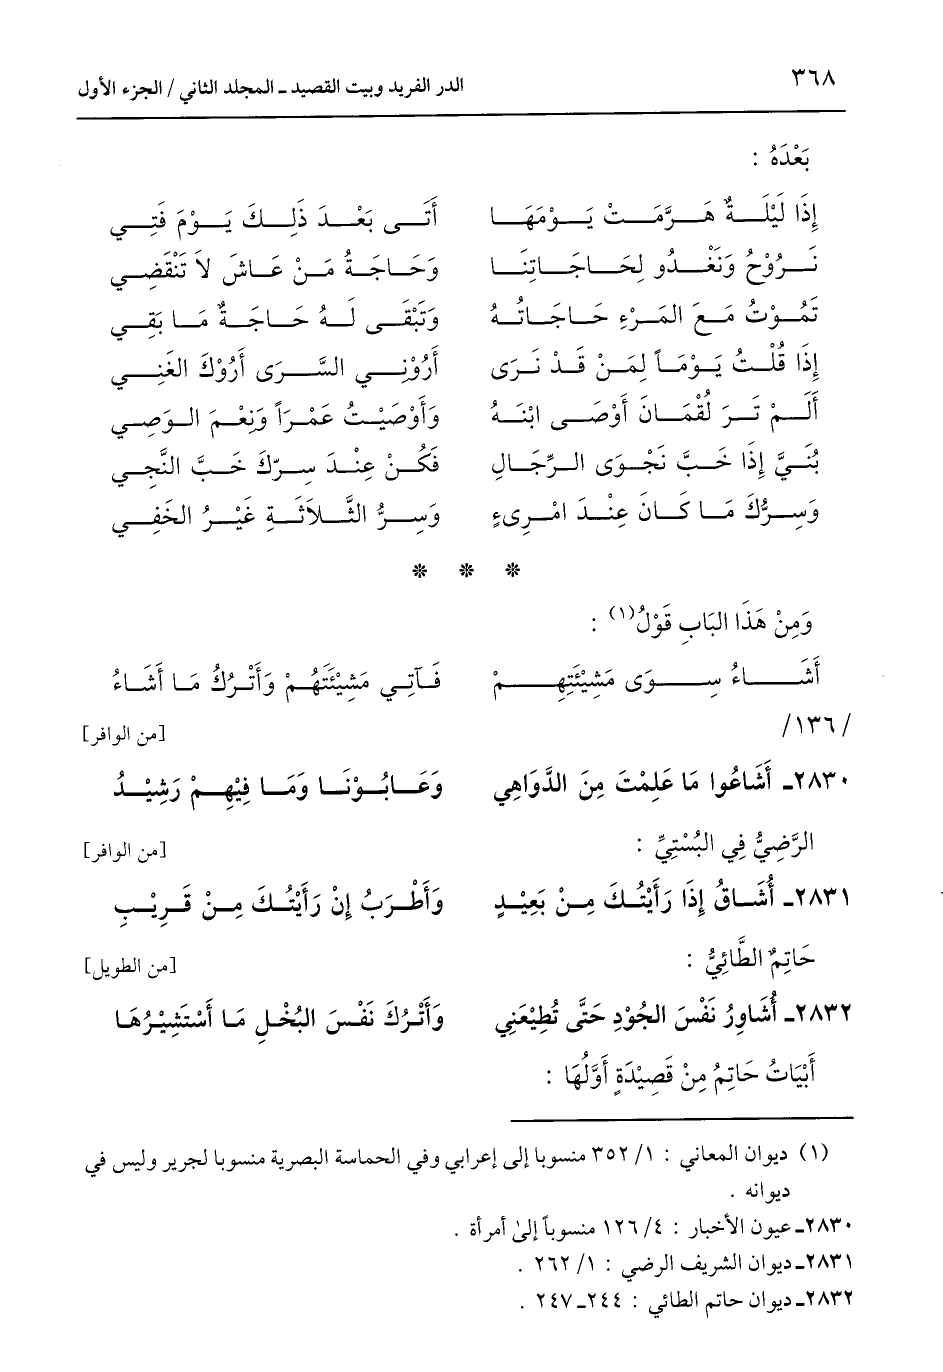 ٣٦٨
الدر الفريد وبيت القصيد ـ المجلد الثاني / الجزء الأول
بَعْدَهُ :
إِذَا لَيْلَةٌ هَرَّمَتْ يَوْمَهَا أَتَى بَعْدَ ذَلِكَ يَوْمٌ فَتِي
نَرُوْحُ وَنَغْدُو لِحَاجَاتِنَا وَحَاجَةُ مَنْ عَاشَ لاَ تَنْقَضِي
تَمُوْتُ مَعَ المَرْءِ حَاجَاتُهُ وَتَبْقَى لَهُ حَاجَةٌ مَا بَقِي
إِذَا قُلْتُ يَوْمَاً لِمَنْ قَدْ نَرَى أَرُوْنِي السَّرَى أَرُوْكَ الغَنِي
أَلَمْ تَرَ لُقْمَانَ أَوْصَى ابْنَهُ وَأَوْصَيْتُ عَمْرَاً وَنِعْمَ الوَصِي
بُنَيَّ إِذَا خَبَّ نَجْوَى الرِّجَالِ فَكُنْ عِنْدَ سِرِّكَ خَبَّ النَّجِي
وَسِرُّكَ مَا كَانَ عِنْدَ امْرِىءٍ وَسِرُّ الثَّلاَثَةِ غَيْرُ الخَفِي
* * *
وَمِنْ هَذَا البَابِ قَوْلُ(١) :
أَشَاءُ سِوَى مَشِيْئَتِهِمْ فَآتِي مَشِيْئَتَهُمْ وَأَتْرُكُ مَا أَشَاءُ
/١٣٦/
[من الوافر]
٢٨٣٠ـ أَشَاعُوا مَا عَلِمْتَ مِنَ الدَّوَاهِي وَعَابُوْنَا وَمَا فِيْهِمْ رَشِيْدُ
الرَّضِيُّ فِي البُسْتِيِّ : [من الوافر]
٢٨٣١ـ أُشَاقُ إِذَا رَأَيْتُكَ مِنْ بَعِيْدٍ وَأَطْرَبُ إِنْ رَأَيْتُكَ مِنْ قَرِيْبِ
حَاتِمٌ الطَّائِيُّ : [من الطويل]
٢٨٣٢ـ أُشَاوِرُ نَفْسَ الجُوْدِ حَتَّى تُطِيْعَنِي وَأَتْرُكَ نَفْسَ البُخْلِ مَا أَسْتَشِيْرُهَا
أَبْيَاتُ حَاتِمُ مِنْ قَصِيْدَةٍ أَوَّلُهَا :
(١) ديوان المعاني : ١/ ٣٥٢ منسوبا إلى إعرابي وفي الحماسة البصرية منسوبا لجرير وليس في
ديوانه .
٢٨٣٠ـ عيون الأخبار : ٤/ ١٢٦ منسوباً إلىٰ أمرأة .
٢٨٣١ـ ديوان الشريف الرضي : ١/ ٢٦٢ .
٢٨٣٢ـ ديوان حاتم الطائي : ٢٤٤ـ ٢٤٧ .